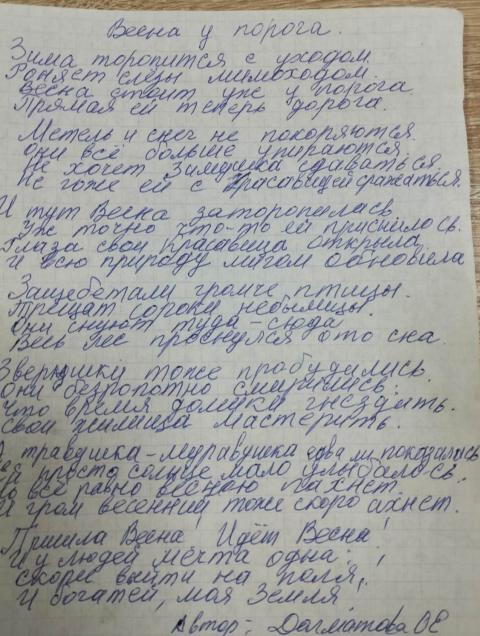 Весна у порога.
Зима торопится с уходом.
Роняет слёзы мимоходом.
Весна стоит уже у порога
Прямая ей теперь дорога.
Метель и снег не покоряются.
Они всё больше упираются.
Не хочет Зимушка сдаваться
Не гоже ей с Красавицей сражаться.
И тут Весна заторопилась
Уж точно что-то ей приснилось.
Глаза свои красавица открыла
И всю природу мигом обновила
Защебетали громче птицы.
Трещат сороки небылицы.
Они снуют туда-сюда
Весь лес проснулся ото сна.
Зверюшки тоже пробудились
Они безропотно смирились.
Что время домики гнездить.
Свои жилища мастерить.
травушка-муравушка едва ли показалась
просто солнце мало улыбалось.
Но всё равно весною пахнет.
И гром весенний тоже скоро ахнет.
Пришла Весна! Идёт Весна!
И у людей мечта одна:
скорей выйти на поля,
И богатей, моя Земля!
Автор: Долматова ОЕ